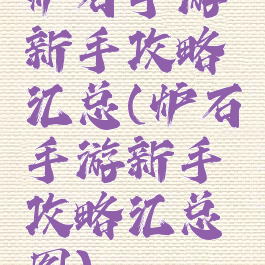 炉石手游
新手攻略
汇总(炉石
手游新手
攻略汇总
图)